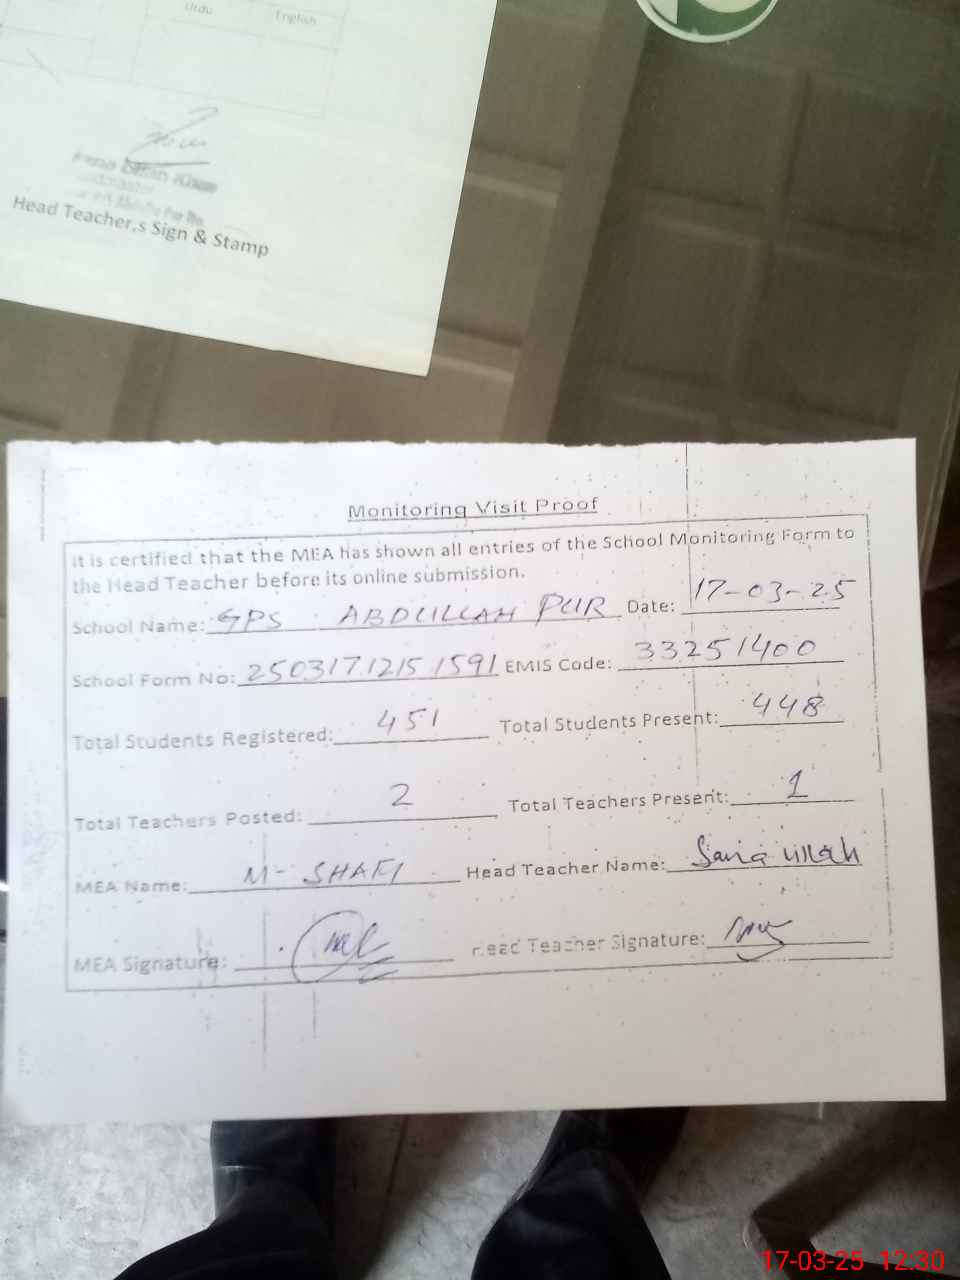 Urdu English
Head Teacher,s Sign & Stamp
Monitoring Visit Proof
It is certified that the MEA has shown all entries of the School Monitoring Form to
the Head Teacher before its online submission.
School Name: GPS ABDULLAH PUR Date: 17-03-25
School Form No: 2503171215 1591 EMIS Code: 33251400
Total Students Registered: 451 Total Students Present: 448
Total Teachers Posted: 2 Total Teachers Present: 1
MEA Name: M- SHAFI Head Teacher Name: Sana ullah
MEA Signature: Head Teacher Signature:
17-03-25 12:30